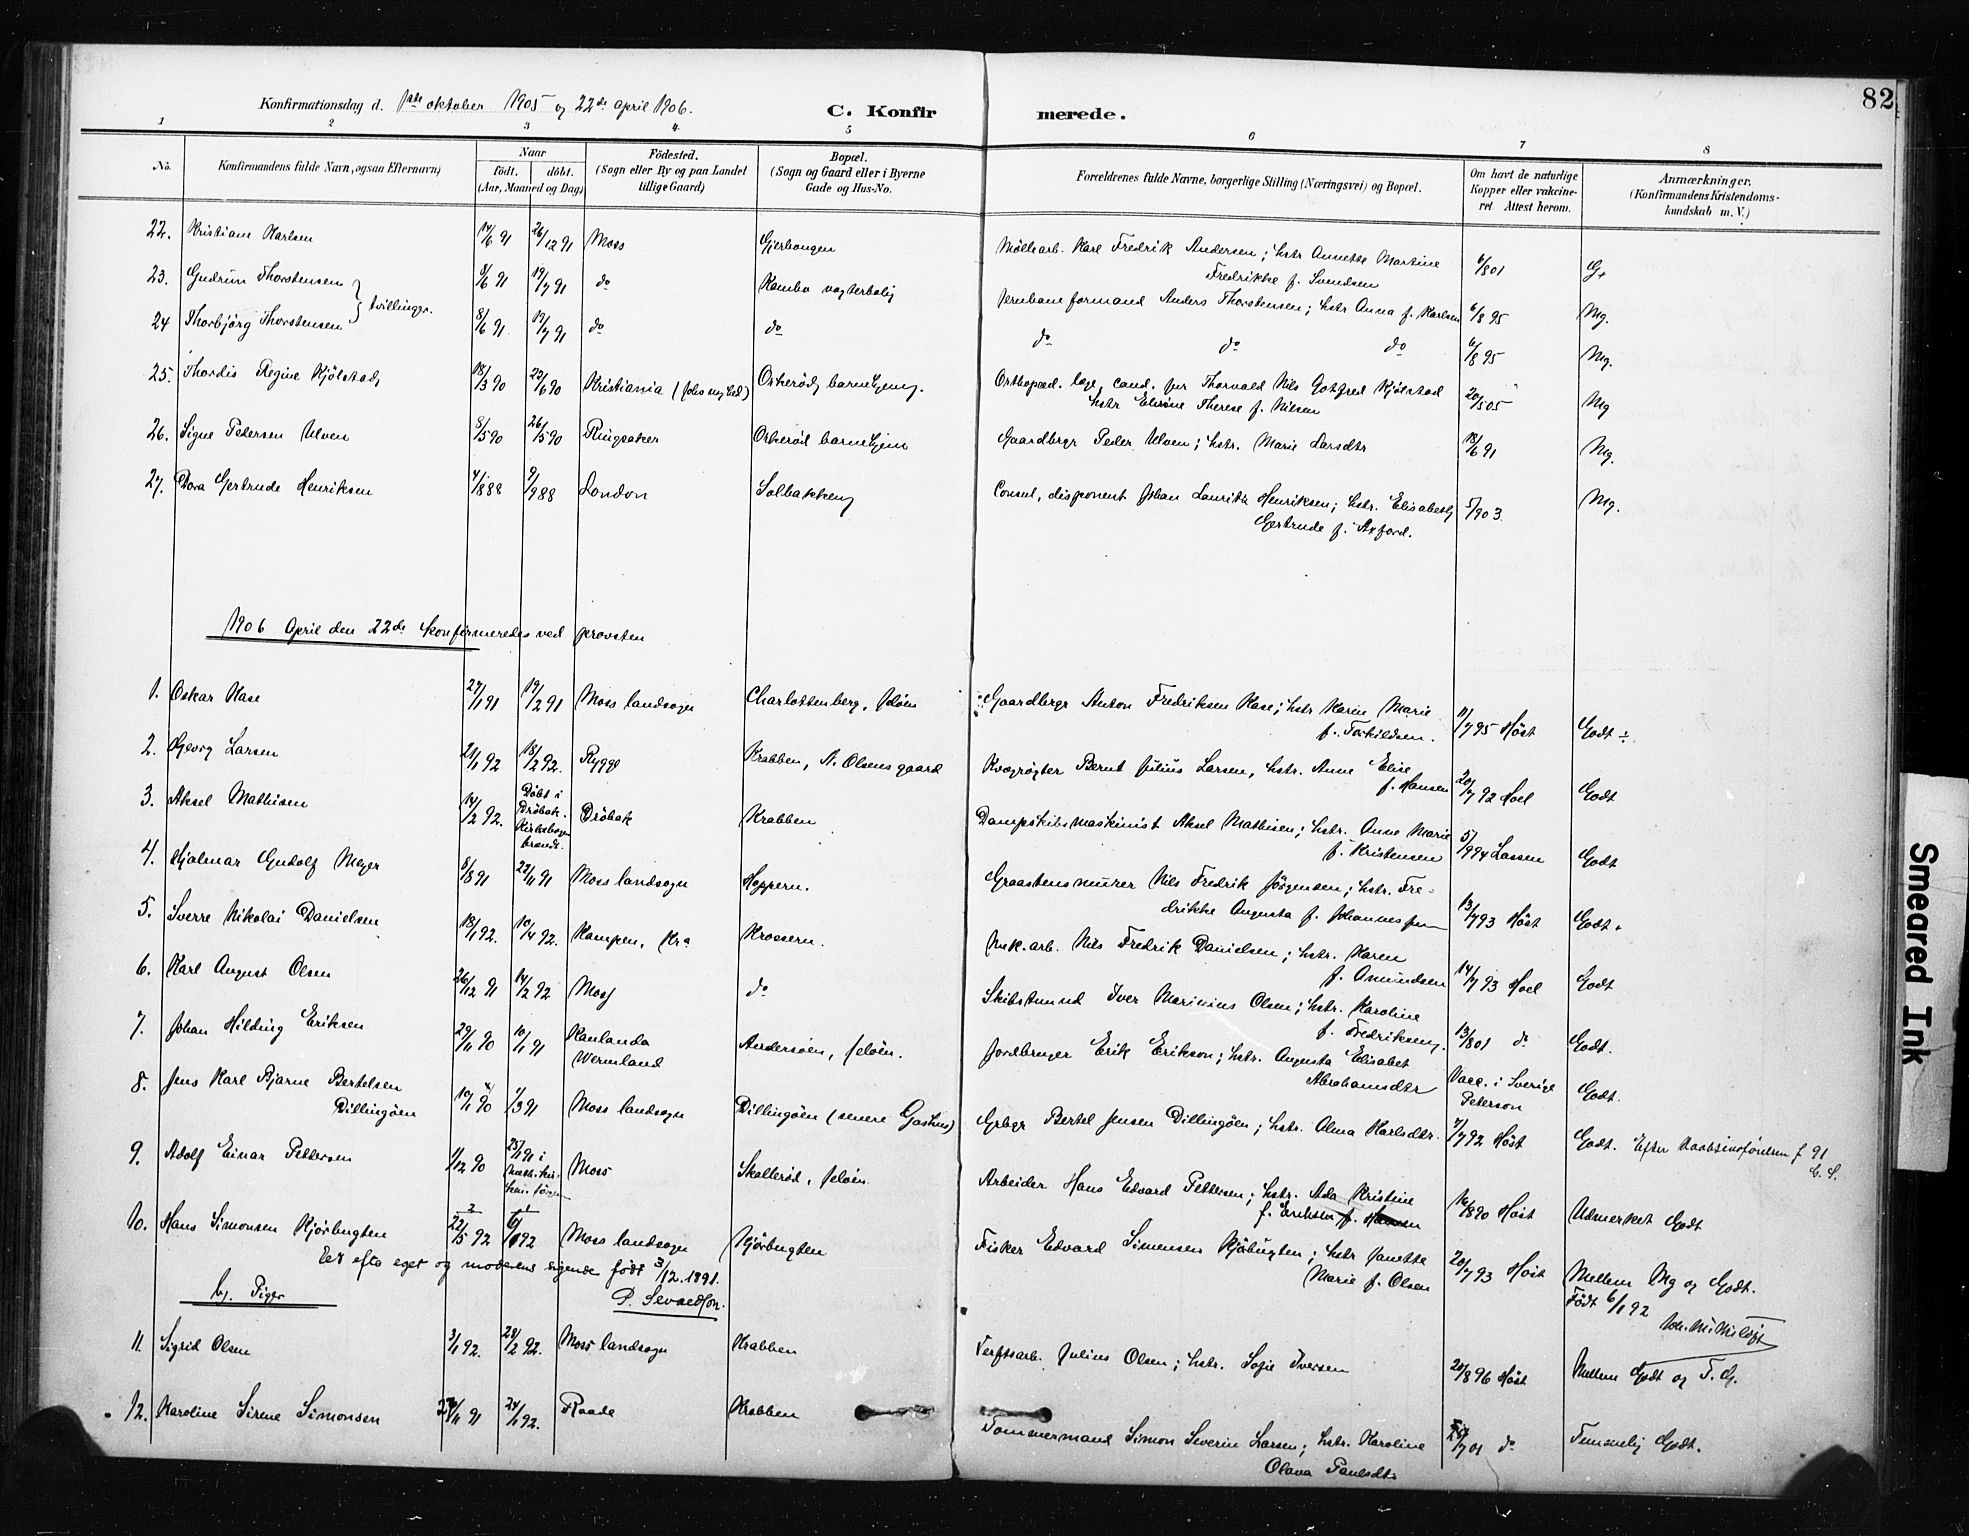 82
Konfirmationsdag d. 1ste oktober 1905 og 22de april 1906.
C. Konfirmerede.
1 2 3 4. 5 6 7 8
No.
Konfirmandens fulde Navn, ogsaa Efternavn)
Naar
født. døbt.
(Aar, Maaned og Dag)
Fødested.
(Sogn eller By og paa Landet
tillige Gaard)
Bopæl.
(Sogn og Gaard eller i Byerne
Gade og Hus-No.
Forældrenes fulde Navne, borgerlige Stilling (Næringsvei) og Bopæl.
Om havt de naturlige
Kopper eller vakcine-
ret Attest herom.
Anmærkninger.
(Konfirmandens Kristendoms-
kundskab m. V.)
22. Kristiane Karlsen 14/6 91 26/12 91 Moss Gjerbongen Møllearb. Karl Fredrik Andersen; hstr Annette Martine
Fredrikke f. Svendsen 6/8 01 G+
23. Gudrun Thorstensen } tvillinger. 8/6 91 19/7 91 do Kambo vogterbolig Jernbaneformand Anders Thorstensen; hstr Anna f. Karlsen 6/8 95 Mg.
24 Thorbjørg Thorstensen 8/6 91 19/7 91 do do do do do 6/8 95 Mg.
25. Thordis Regine Kjølstad 18/3 90 22/6 90 Kristiania Orkerød, barnehjem. Orthopæd. læge, cand. Thorvald Nils Gotfred Kjølstad
hstr Elvine Therese f. Nilsen 20/5 05 Mg
26. Signe Petersen Ulven 8/5 90 26/5 90 Ringsaker Orkerød barnehjem Gaardbrgr Peder Ulven; hstr. Marie Larsdtr 18/6 91 Mg.
27. Dora Gertrude Henriksen 4/8 88 9/9 88 London Solbakken Consul, disponent Johan Lauritz Henriksen; hstr. Elisabeth
Gertrude f. Axford. 5/9 03 Mg.
1906 April den 22de konfirmeredes ved provsten
1. Oskar Kase 27/1 91 19/2 91 Moss landsogn Charlottenberg, Jeløen Gaardbrgr Anton Fredriksen Kase; hstr Karin Marie
f. Torkildsen. 11/7 95 Høst Godt ÷
2. Georg Larsen 21/1 92 18/2 92. Rygge Krabben, A. Olsens gaard Kvægrøgter Bernt Julius Larsen, hstr. Anne Elise
f. Hansen 20/7 92 Hoel Godt
3. Aksel Mathisen 14/2 92. Døbt i
Drøbak.
Kirkebogen
brændt. Drøbak Krabben Dampskibsmaskinist Aksel Mathisen; hstr. Anne Marie
f. Kristensen 5/9 94 Lassen Godt
4. Hjalmar Gudolf Meyer 8/8 91 22/11 91 Moss landsogn Hoppern. Graastensmurer Nils Fredrik Jørgensen; hstr. Fre-
drikke Augusta f. Johannessen 13/7 93 Høst Godt
5. Sverre Nikolai Danielsen 18/1 92. 10/4 92. Kampen, Kra Krossern. arb. Nils Fredrik Danielsen; hstr. Karen
f. Amundsen 14/7 93 Hoel Godt
6. Karl August Olsen 26/12 91 14/2 92 Moss do Skibstømmd Iver Marinius Olsen; hstr. Karoline
f. Fredriksen. 13/8 01 do Godt.
7. Johan Hilding Eriksen 29/11 90 10/1 91 Kanlanda
Wermland Andersøen, Jeløen. Jordbruger Erik Erikson; hstr. Augusta Elisabet
Abrahamsdtr Vacc. i Sverige
Peterson Godt.
8. Jens Karl Bjarne Bertelsen
Dillingøen 19/1 90 1/3 91 Moss landsogn Dillingøen (senere Gashus) Grbgr Bertel Jensen Dillingøen; hstr. Olma Karlsdtr. 7/7 92 Høst Godt. Efter f 91
9. Adolf Einar Pettersen 1/12 90 25/1 91 i Moss Skallerød, Jeløen. Arbeider Hans Edvard Pettersen; hstr. Ada Kristine
f. Eriksen f. Hansen 16/8 90 Høst Udmerket Godt.
10. Hans Simonsen Kjørbugten 22/5 92 6/1 92 Moss landsogn Kjørbugten Fisker Edvard Simensen Kjøbugten; hstr Janette
Marie f. Olsen 20/7 93 Høst Mellem Mg og Godt.
Født 6/1 92
Er efter eget og moderens sigende født 3/12.1891.
P. Sevaldson.
b). Piger
11. Sigrid Olsen 3/1 92. 28/2 92. Moss landsogn Krabben Verftsarb. Julius Olsen; hstr. Sofie Iversen 20/8 96 Høst Mellem Godt og T. G.
12. Karoline Sirene Simonsen 27/11 91 24/1 92. Raade Krabben Tømmermand Simon Severin Larsen; hstr. Karoline
Olava Paulsdtr 7/7 01 do Temmelig Godt.
Smeared Ink